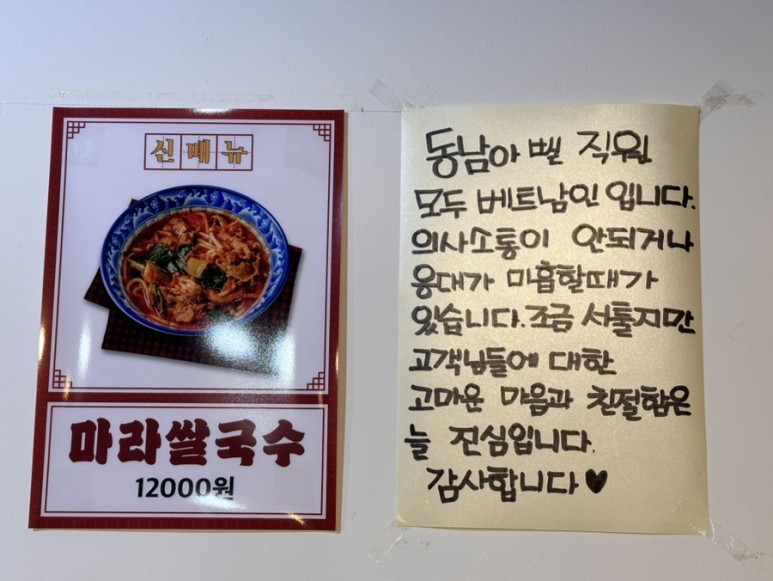 신메뉴
마라쌀국수
12000원
동남아 삘 직원
모두 베트남인 입니다.
의사소통이 안되거나
응대가 미흡할때가
있습니다. 조금 서툴지만
고객님들에 대한
고마운 마음과 친절함은
늘 진심입니다.
감사합니다♥